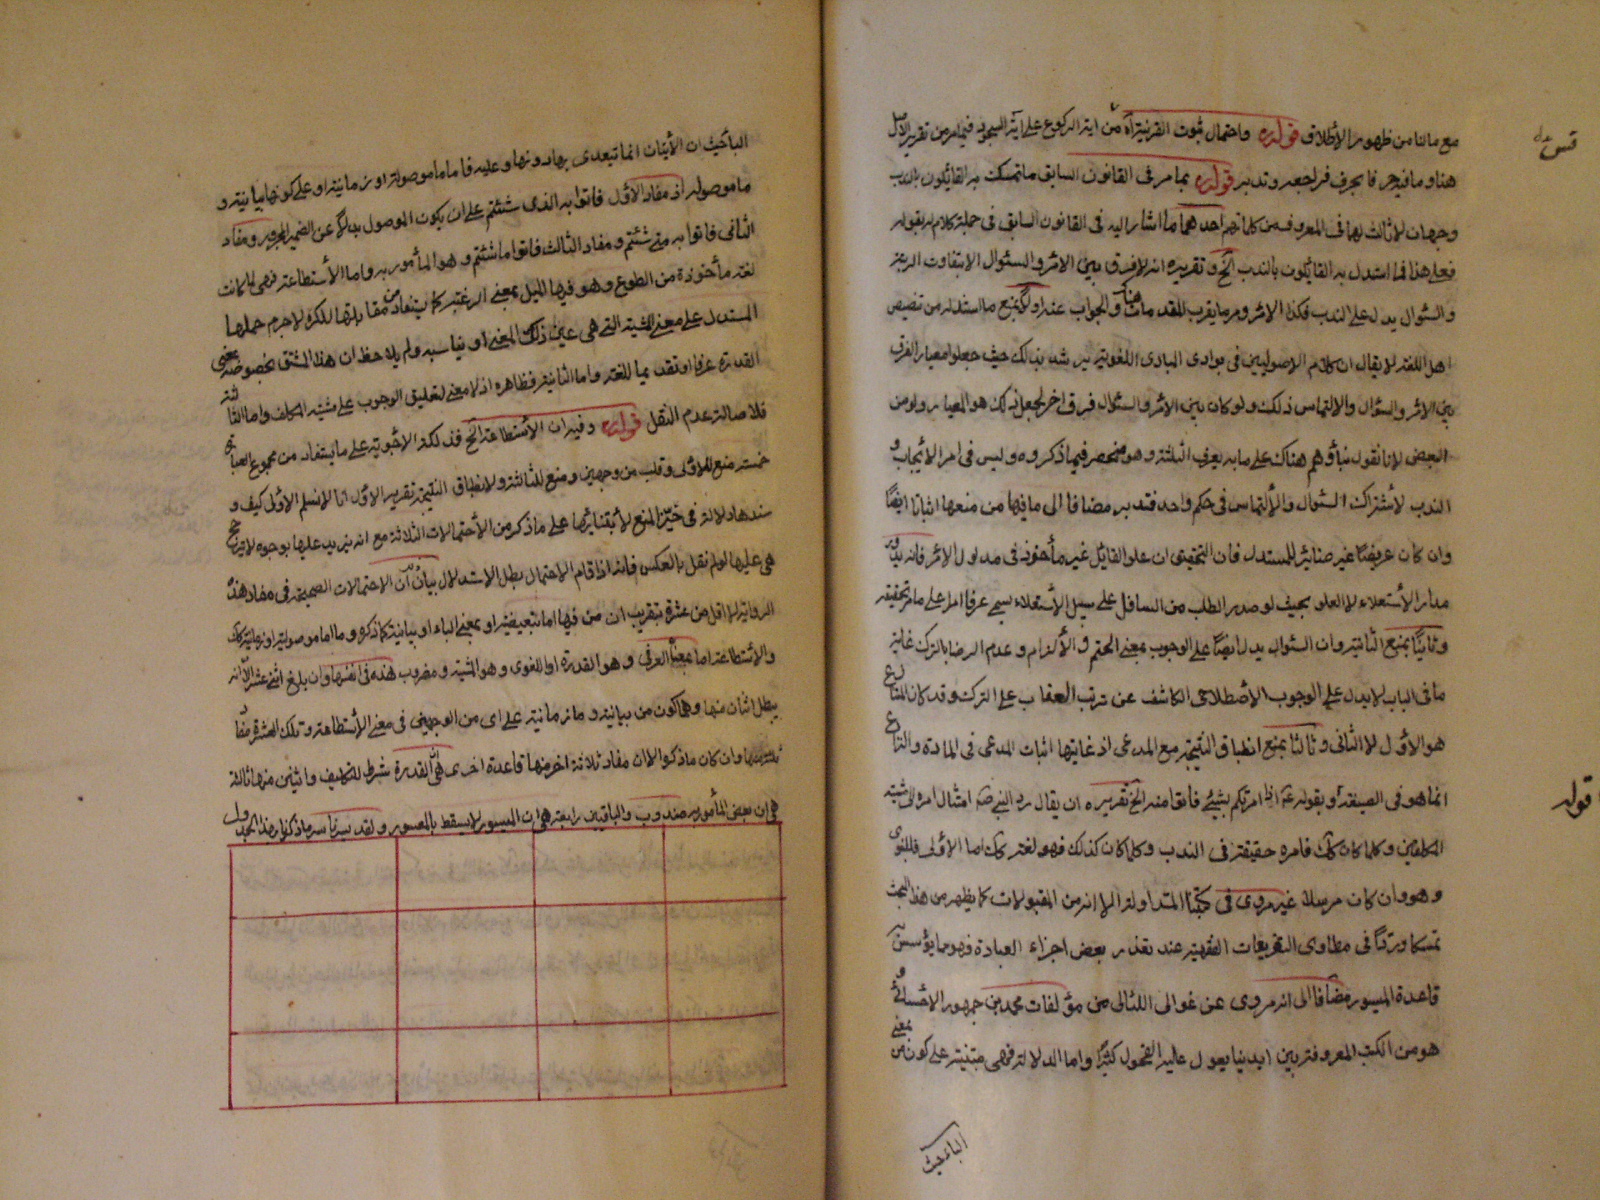 مع مالنا من ظهور الأطلاق قوله واحتمال ثبوت القرنية آه من اية الركوع على اية السجود فيما مر من تقرير الأصل
هنا وما فيه جر فا بحرف فراجعه وتدبر قوله بما مر فى القانون السابق ما تمسك به القائلون بالندب
وجهان لا ثالث لها فى المعروف من كلماتهم احدهما ما اشار اليه فى القانون السابق فى جملة كلام له بقوله
فعلى هذا فما استدل به القائلون بالندب الخ وتقريره انه لا فرق بين الامر والسئوال الا بتفاوت الرتبة
والسئوال يدل على الندب فكذا الامر ومر ما يقرب المقدمات هناك والجواب عنه اولاً بمنع ما استدله من تنصيص
اهل اللغة لا يقال ان كلام الاصوليين فى بوادى المبادى اللغوية يرشد بذلك حيث جعلوا معيار الفرق
بين الامر والسئوال والالتماس ذلك ولو كان بين الامر والسئوال فرق اخر لجعل ذلك هو المعيار ولو من
البعض لانا نقول بناؤهم هناك على ما به يعرف الثلثة وهو منحصر فيما ذكروه وليس فى امر الايجاب و
الندب لأشتراك السئوال والألتماس فى حكم واحد فتدبر مضافا الى ما فيها من منعها اثباتا ايضاً
وان كان غير ضائر للمستدل فان التحقيق ان علو القائل غير مأخوذ فى مدلول الامر فانه يدور
مدار الأستعلاء لا العلو بحيث لو صدر الطلب من السافل على سبيل الأستعلاء يسمى عرفا امرا على ما مر تحقيقه
وثانيًا بمنع الثانية وان السئوال يدل ايضًا على الوجوب بمعنى الحتم والألزام وعدم الرضا بالترك غاية
ما فى الباب لا يدل على الوجوب الأصطلاحى الكاشف عن ترتب العقاب على الترك وقد كان المتنازع
هو الأول لا الثانى وثالثا بمنع انطباق النتيجة مع المدعى اذ غايتها اثبات المدعى فى المادة والنزاع
انما هو فى الصيغة قوله وبقوله ع اذا امرتكم بشيئ فأتوا منه الخ تقريره ان يقال رد النبى ص امتثال امره الى مشية
المكلفين وكلما كان كك فامره حقيقة فى الندب وكلما كان كذلك فهو لغة كك اما الأولى فللنبوى
وهو وان كان مرسلا غير مروى فى كتبنا المتداولة الا انه من المقبولات كما يظهر من هذا البحث
تمسكا ورداً فى مطاوى التفريعات الفقهية عند تعذر بعض اجزاء العبادة فهو ما يؤسس به
قاعدة الميسور مضافا الى انه مروى عن غوالى اللئالى من مؤلفات محمد بن جمهور الاحسائى و
هو من الكتب المعروفة بين ايدينا يعول عليه الفحول كثيرًا واما الدلالة فهى مبتنية على كون من بمعنى
الباء حيث
قوله
الباء حيث ان الأتيان انما تيعدى بها دونها وعليه فاما ما موصولة او زمانية او على كونها بيانية و
ما موصوله اذ مفاد الأول فاتوا به الذى شئتم على ان يكون الموصول بدلاً عن الضمير المجرور ومفاد
الثانى فاتوا به متى شئتم ومفاد الثالث فاتوا ما شئتم وهو المأمور به واما الأستطاعة فهى لما كانت
لغة مأخوذة من الطوع وهو فيها الميل بمعنى الرغبة كما يستفاد من مقابلتها للكره لاجرم حملها
المستدل على معنى المشية التى هى عين ذلك المعنى او يناسبه ولم يلاحظ ان هذا المشتق بخصوصه بمعنى
القدرة عرفا او تقديما للغة واما الثانية فظاهره اذ لا معنى لتعليق الوجوب على مشية المكلف واما الثالثة
فلاصالة عدم النقل قوله وفيه ان الأستطاعة الخ فذلكة الاجوبة على ما يستفاد من مجموع العبارة
خمسة منع للاولى وقلب من وجهين ومنع للثالثة ولانطباق النتيجة تقرير الأول انا لا نسلم الاولى كيف و
سندها دلالة فى حيّز المنع لأبتنائها على ما ذكر من الأحتمالات الثلاثة مع انه يزيد عليها بوجوه لا ترجيح
هى عليها لو لم نقل بالعكس فانه اذا قام الاحتمال بطل الاستدلال بيان ان الاحتمالات الصحيحة فى مفاد هذه
الرواية لا اقل من عشرة بتقريب ان من فيها اما تبعيضية او بمعنى الباء او بيانية كما ذكره وما اما موصولة او زمانية كك
والأستطاعة اما بمعناها العرفى وهو القدرة او اللغوى وهو المشية ومضروب هذه فى انفسها وان بلغ اثنى عشر الا انه
يبطل اثنان منها وهما كون من بيانية وما زمانية على اى من الوجهين فى معنى الأستطاعة وتلك العشرة وفاقا
وان كان ما ذكروا الا ان مفاد ثلاثة اخر منها قاعدة اخرى هى ان القدرة شرط للتكليف واثنين منها ثالثة
هى ان بعض المأمور به مندوب والباقيين رابعة هى ان الميسور لا يسقط بالمعسور ولقد يسرنا سر ما ذكرنا بهذا الجدول